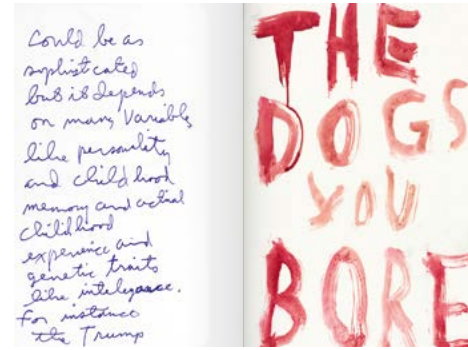 Could be as
sophisticated
but it depends
on many Variables
like personality
and child hood
memory and actial
childhood
experience and
genetic traits
like intelegance.
For instance
the Trump
THE
DOGS
YOU
BORE